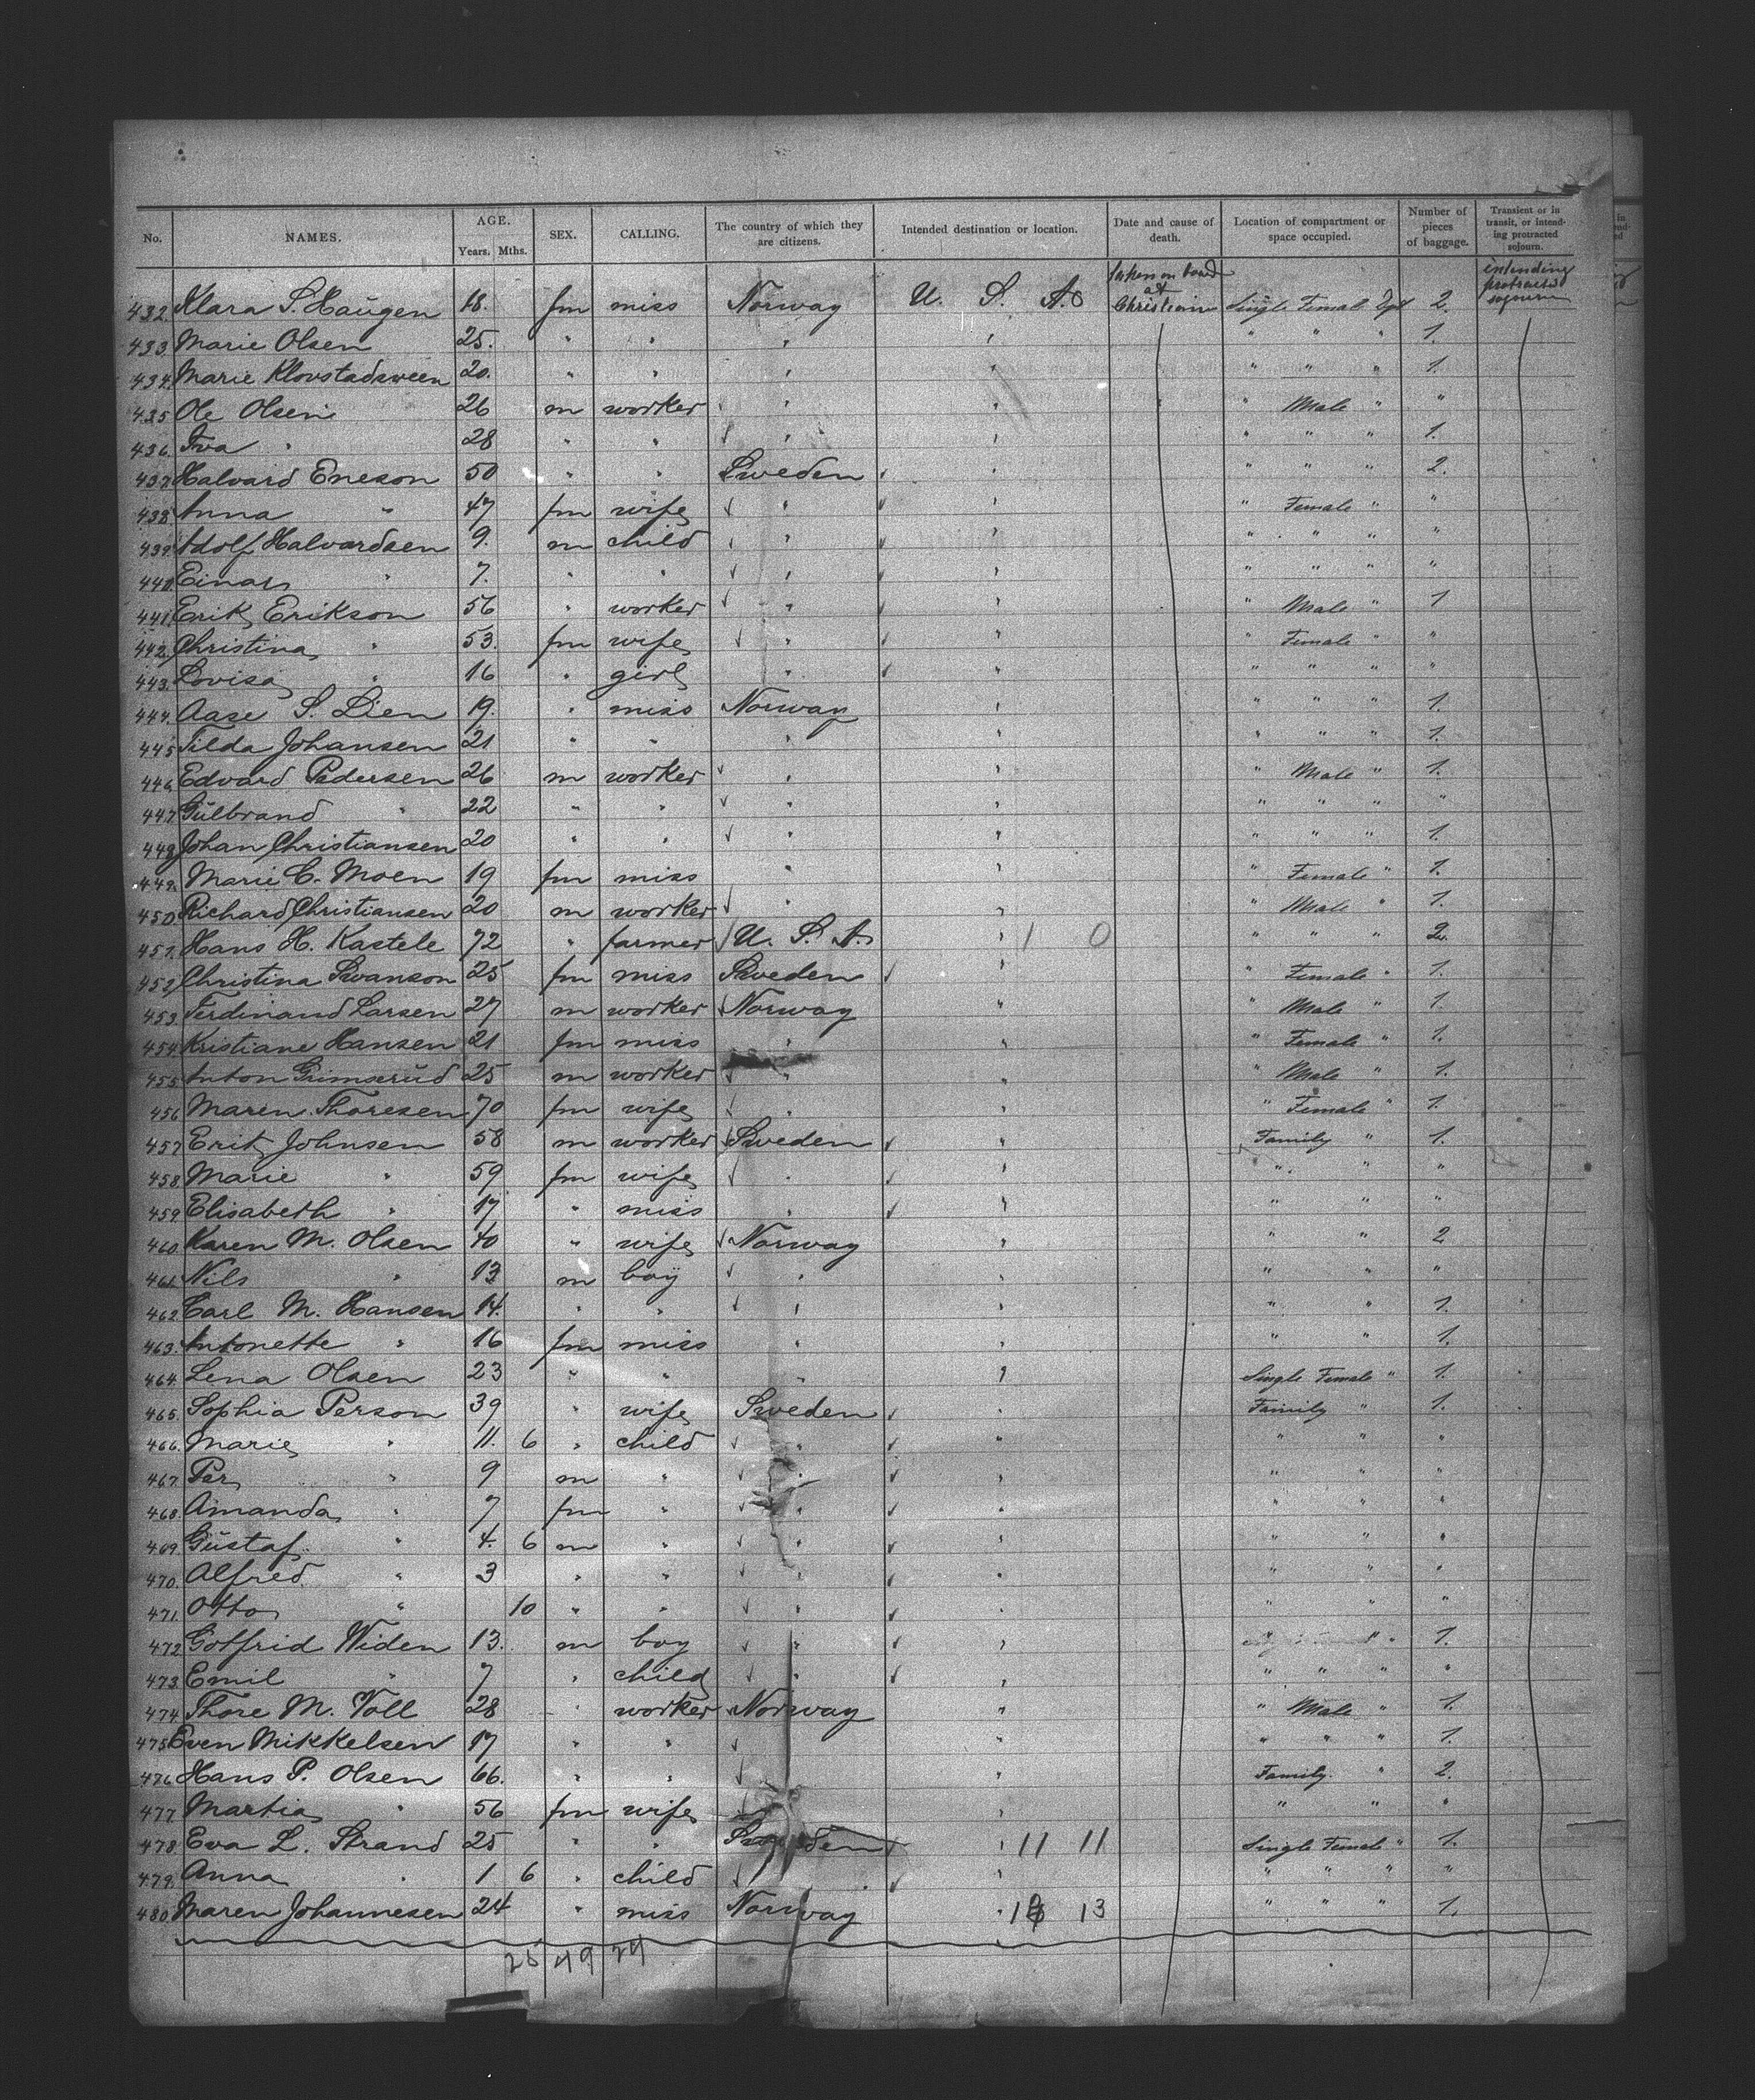 No. NAMES. AGE. Years. Mths. SEX. CALLING. The country of which they are citizens. Intended destination or location. Date and cause of death. Location of compartment or space occupied. Number of pieces of baggage. Transient or in transit, or intending protracted sojourn.
432. Klara S. Haugen 18. fm miss Norway U. S. A. taken on board at Christiania Single Female Dpt 2. intending protracted sojourn
433. Marie Olsen 25. " " " " " " " 1.
434. Marie Klovstadsveen 20. " " " " " " " 1.
435 Ole Olsen 26 m worker " " " Male " "
436. Iva " 28 " " " " " " " 1.
437. Halvard Eneson 50 " " Sweden " " " " 2.
438. Anna " 47 fm wife " " " Female " "
439. Adolf Halvardsen 9. m child " " " " " "
440. Einar " 7. " " " " " " " "
441. Erik Erikson 56 " worker " " " Male " 1
442. Christina " 53. fm wife " " " Female " "
443. Lovisa " 16 " girl " " " " " "
444. Aase S. Lien 19. " miss Norway " " " " 1.
445 Tilda Johansen 21 " " " " " " " 1.
446. Edvard Pedersen 26 m worker " " " Male " 1.
447. Gülbrand " 22 " " " " " " " "
448. Johan Christiansen 20 " " " " " " " 1.
449. Marie C. Moen 19 fm miss " " " Female " 1.
450. Richard Christiansen 20 m worker " " " Male " 1.
451. Hans H. Kastele 72 " farmer U. S. A. " 1 0 " " " 2.
452. Christina Swanson 25 fm miss Sweden " " Female " 1.
453. Ferdinand Larsen 27 m worker Norway " " Male " 1.
454 Kristiane Hansen 21 fm miss " " " Female " 1.
455. Anton Grimsrüd 25 m worker " " " Male " 1.
456 Maren Thoresen 70 fm wife " " " Female " 1.
457 Erik Johnsen 58 m worker Sweden " Family " 1.
458. Marie " 59 fm wife " " " " "
459 Elisabeth " 17 " miss " " " " "
460. Karen M. Olsen 40 " wife Norway " " " 2
461. Nils " 13 m boy " " " " "
462 Carl M. Hansen 14. " " " " " " 1.
463. Antonette " 16 fm miss " " " " 1.
464. Lena Olsen 23 " " " " Single Female " 1.
465. Sophia Person 39 " wife Sweden " Family " 1.
466. Marie " 11. 6 " child " " " " "
467. Per " 9 m " " " " " "
468. Amanda " 7 fm " " " " " "
469. Güstaf " 4. 6 m " " " " " "
470. Alfred " 3 " " " " " " "
471. Otto " 10 " " " " " " "
472 Gotfrid Widen 13. m boy " " " 1.
473. Emil " 7 " child " " " " " "
474 Thore M. Voll 28 " worker Norway " " Male " 1.
475 Even Mikkelsen 17 " " " " " " 1.
476. Hans P. Olsen 66. " " " Family " 2.
477. Martia " 56 fm wife " " " "
478. Eva L. Strand 25 " " Sweden " 11 11 Single Female " 1.
479. Anna " 1 6 " child " " " " "
480. Maren Johannesen 24 " miss Norway " 13 " " " 1.
25 49 24